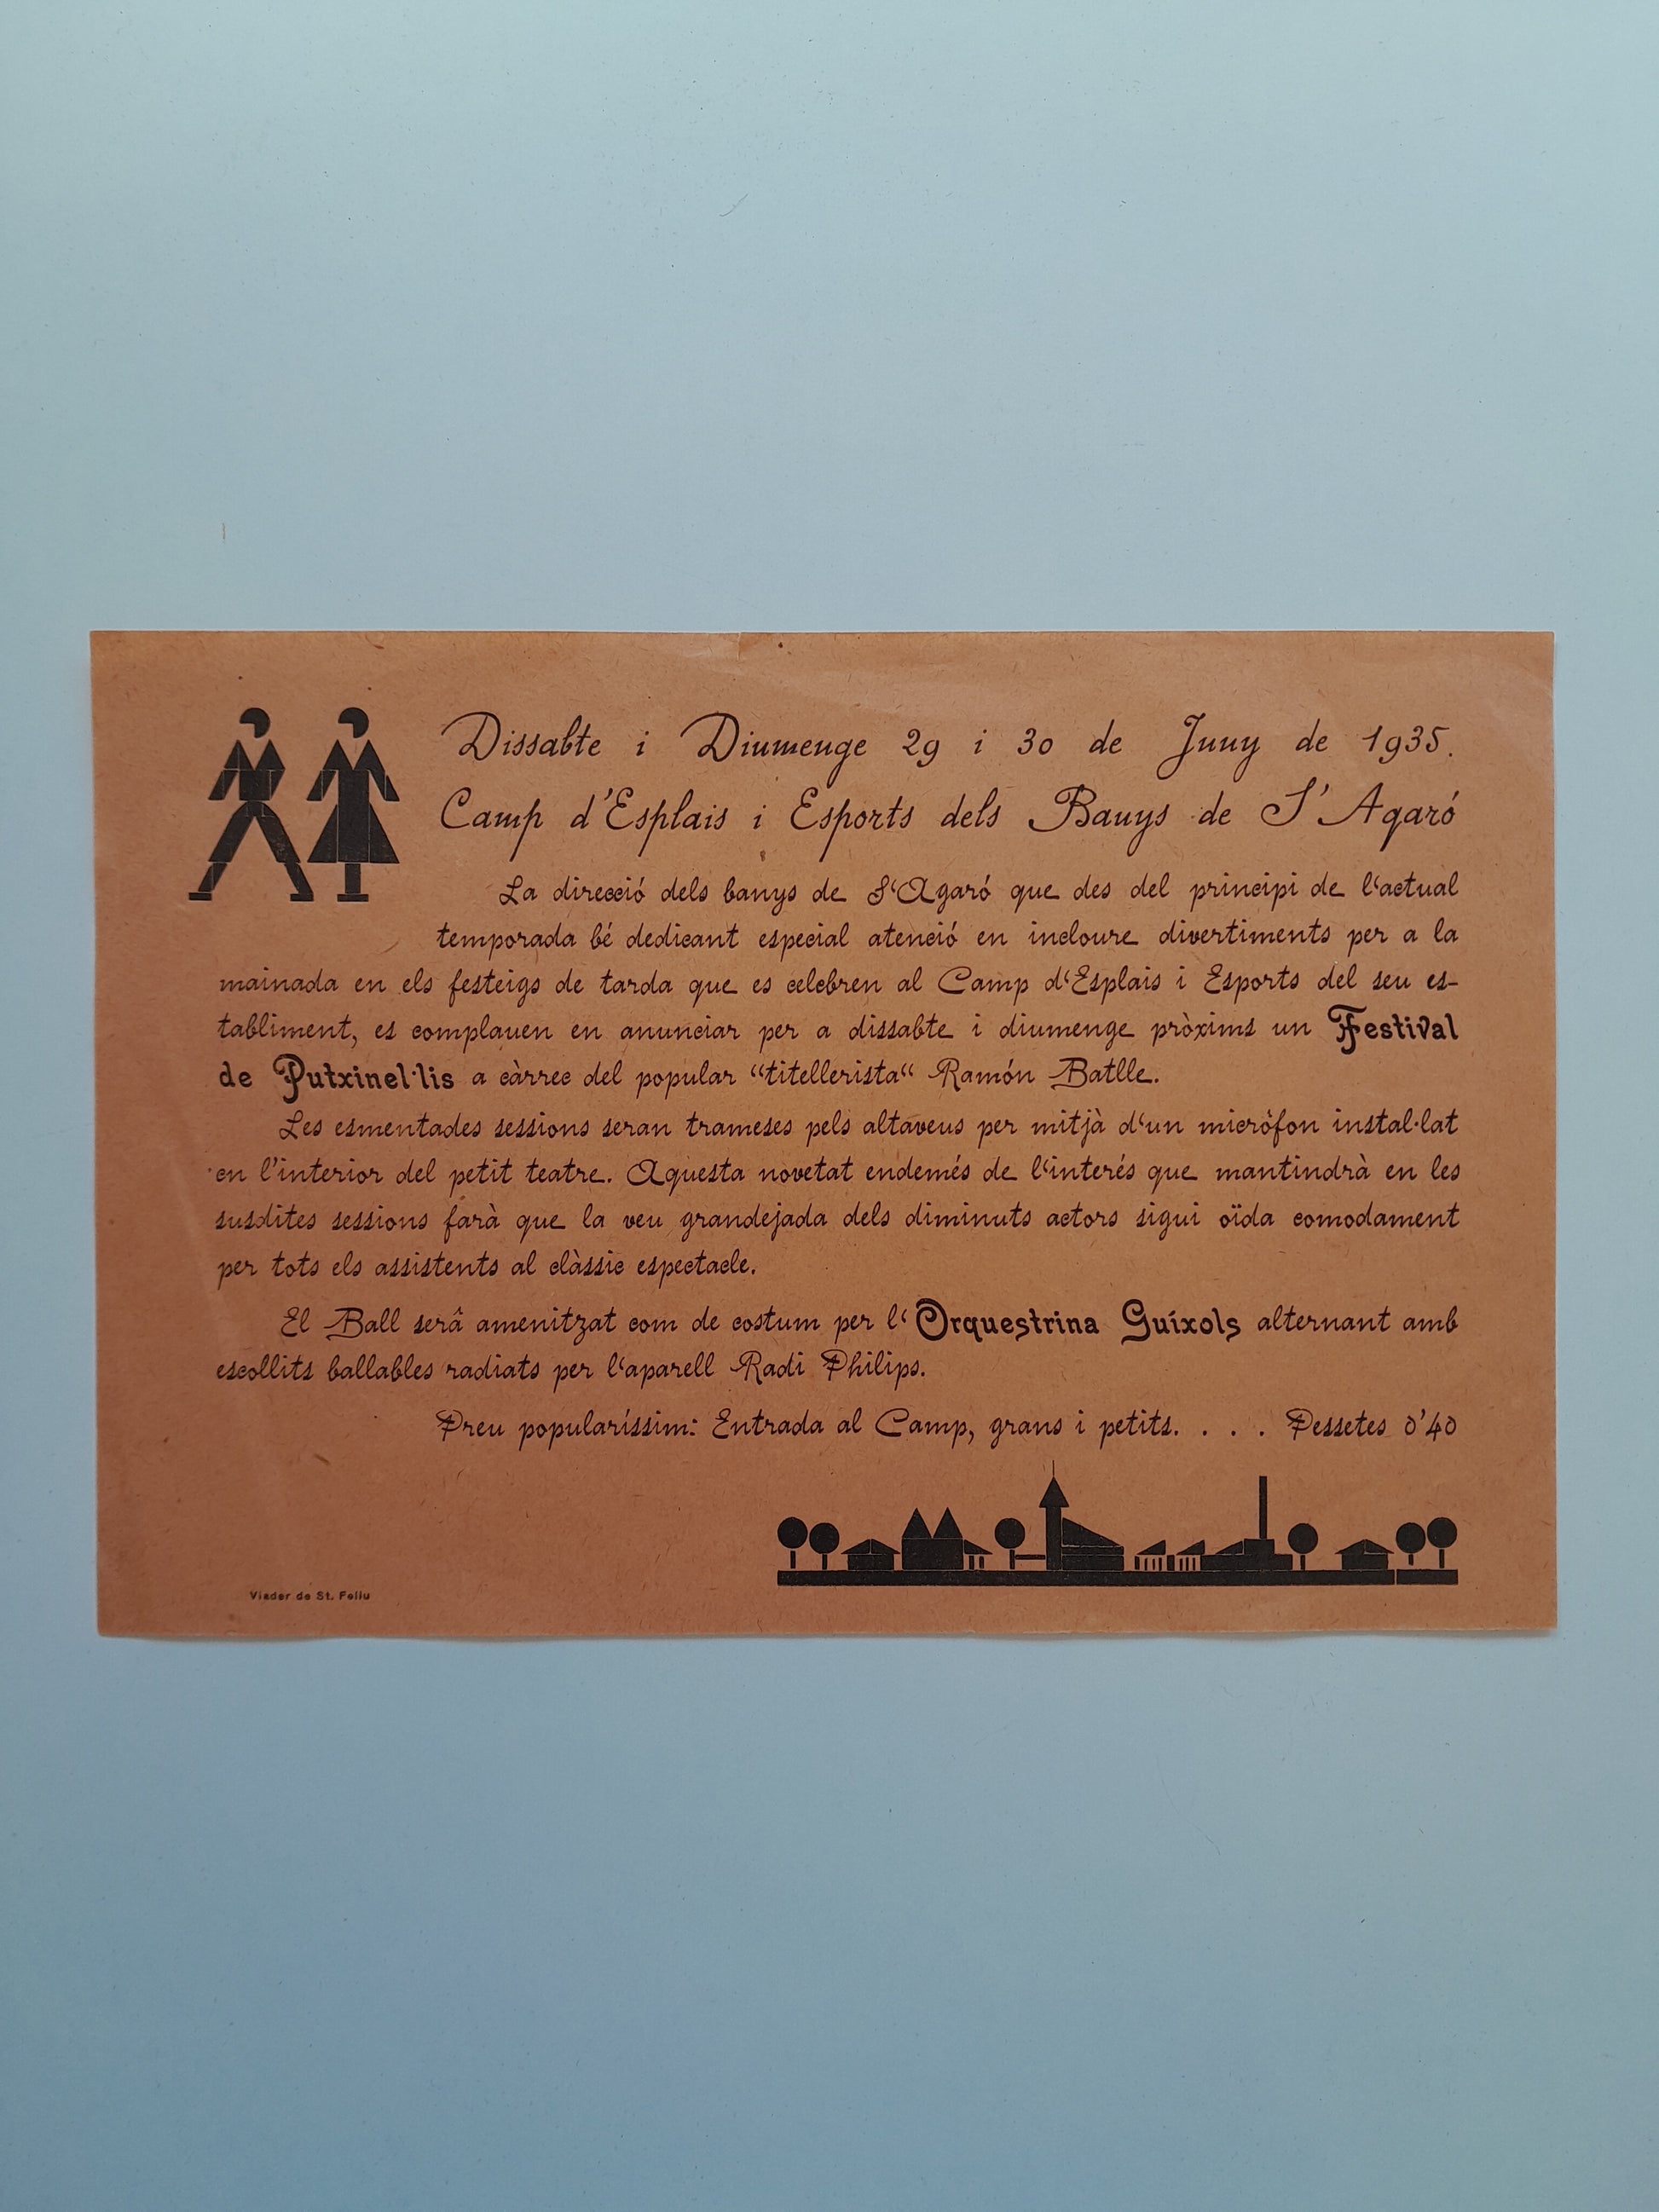 Dissabte i Diumenge 29 i 30 de Juny de 1935.
Camp d'Esplais i Esports dels Banys de S'Agaró
La direcció dels banys de S'Agaró que des del principi de l'actual
temporada bé dedicant especial atenció en incloure divertiments per a la
mainada en els festeigs de tarda que es celebren al Camp d'Esplais i Esports del seu es-
tabliment, es complauen en anunciar per a dissabte i diumenge pròxims un Festival
de Putxinel·lis a càrrec del popular “titellerista“ Ramón Batlle.
Les esmentades sessions seran trameses pels altaveus per mitjà d'un micròfon instal·lat
en l'interior del petit teatre. Aquesta novetat endemés de l'interés que mantindrà en les
susdites sessions farà que la veu grandejada dels diminuts actors sigui oïda comodament
per tots els assistents al clàssic espectacle.
El Ball serâ amenitzat com de costum per l'Orquestrina Guíxols alternant amb
escollits ballables radiats per l'aparell Radi Philips.
Preu popularíssim: Entrada al Camp, grans i petits. . . . Pessetes 0'40
Viader de St. Feliu